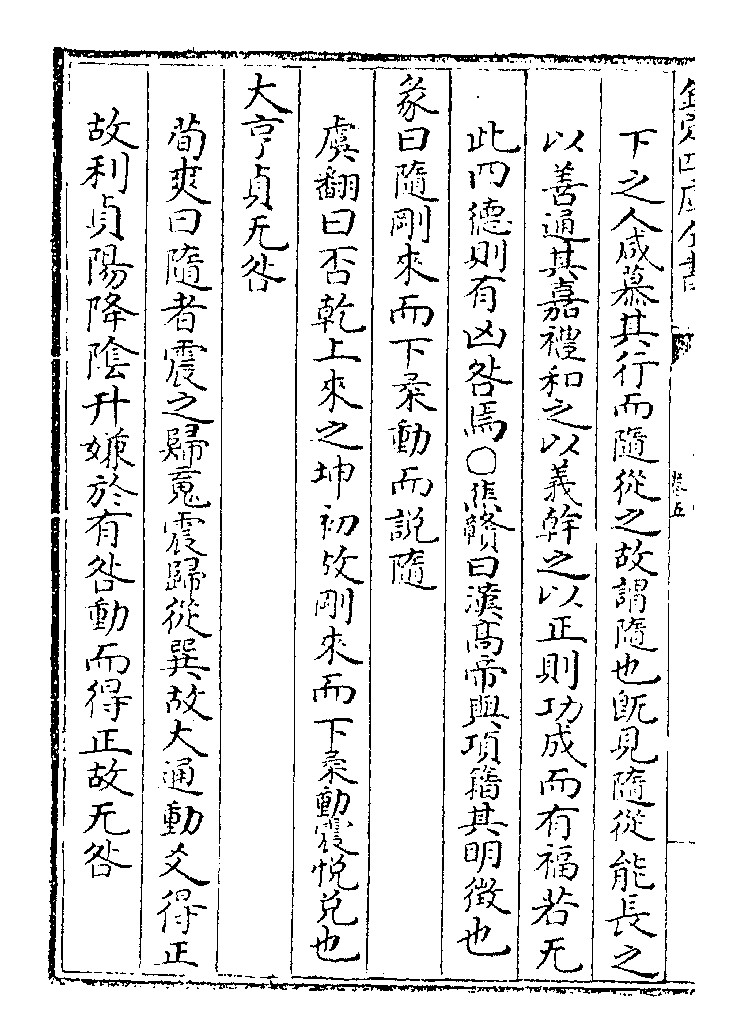 欽定四庫全書
卷五
下之人咸慕其行而隨從之故謂隨也既見隨從能長之
以善通其嘉禮和之以義幹之以正則功成而有福若无
此四德則有凶咎焉○焦贛曰漢高帝與項籍其明徵也
彖曰隨剛來而下柔動而説隨
虞翻曰否乾上來之坤初故剛來而下柔動震悦兑也
大亨貞无咎
荀爽曰隨者震之歸䰟震歸從巽故大通動爻得正
故利貞陽降陰升嫌於有咎動而得正故无咎